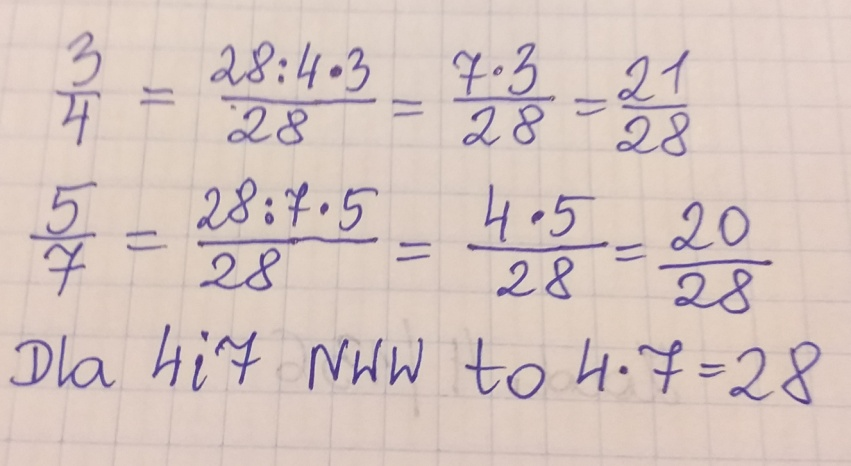 3/4 = 28:4·3/28 = 7·3/28 = 21/28
5/7 = 28:7·5/28 = 4·5/28 = 20/28
Dla 4i7 NWW to 4·7=28